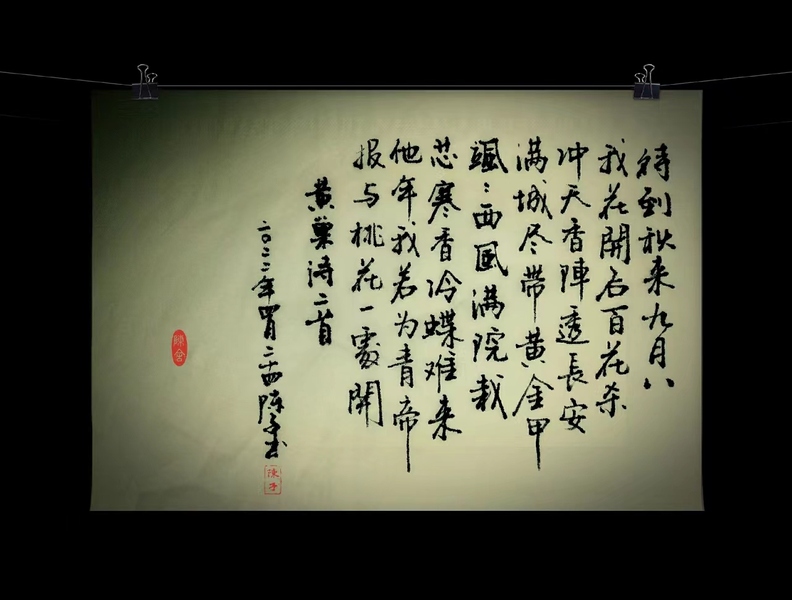 待到秋来九月八
我花開后百花杀
冲天香陣透長安
满城尽带黄金甲
飒々西風满院栽
芯寒香冷蝶难来
他年我若为青帝
报与桃花一處開
黄巢诗二首
二〇二二年四月二十四陳子书
陳子